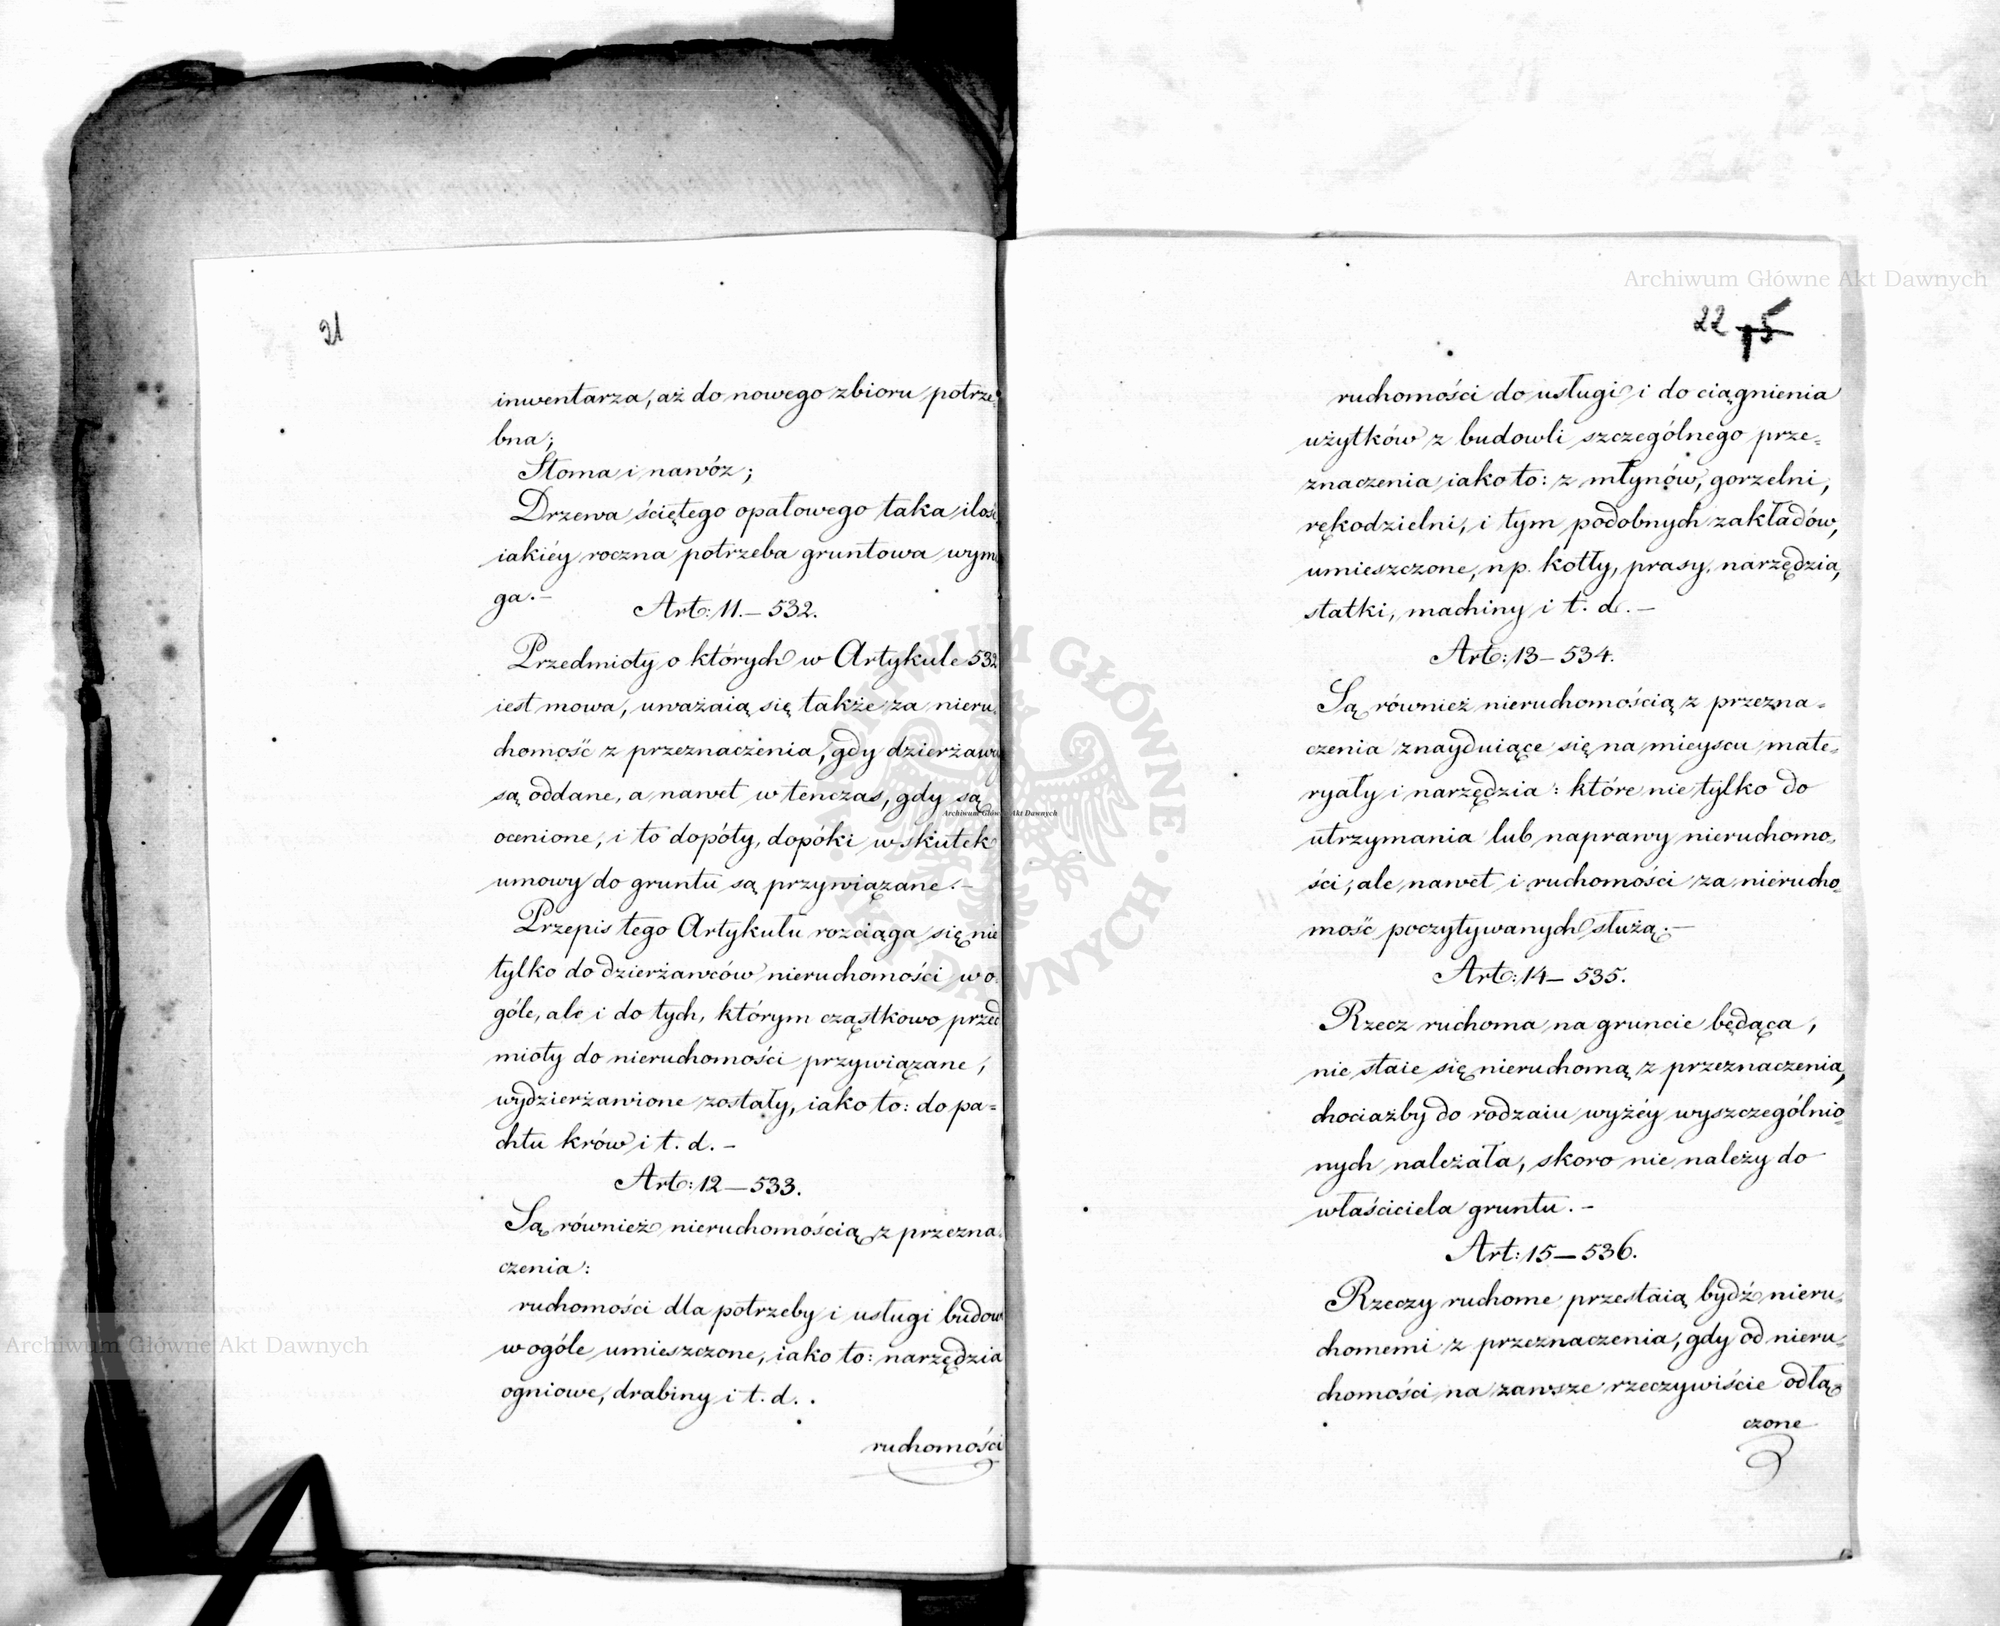 21
inwentarza, aż do nowego zbioru potrze-
bna;
Słoma i nawóz;
Drzewa ściętego opałowego taka ilość
iakiéy roczna potrzeba gruntowa wyma
ga.–
Art: 11.– 532.
Przedmioty o których w Artykule 532
iest mowa, uważaią się także za nieru-
chomość z przeznaczenia, gdy dzierżawcy
są oddane, a nawet w tenczas, gdy są
ocenione, i to dopóty, dopóki w skutek
umowy do gruntu są przywiązane.–
Przepis tego Artykułu rozciąga się nie
tylko do dzierżawców nieruchomości w o-
góle, ale i do tych, którym cząstkowo przed
mioty do nieruchomości przywiązane,
wydzierżawione zostały, iako to: do pa-
chtu krów i t. d.–
Art: 12 – 533.
Są również nieruchomością z przezna-
czenia:
ruchomości dla potrzeby i usługi budow
w ogóle umieszczone, iako to: narzędzia
ogniowe, drabiny i t. d. .
ruchomości
22 15
ruchomości do usługi i do ciągnienia
użytków z budowli szczególnego prze-
znaczenia iako to: z młynów, gorzelni,
rękodzielni, i tym podobnych zakładów,
umieszczone, np. kotły, prasy, narzędzia,
statki, machiny i t. d.–
Art: 13 – 534.
Są również nieruchomością z przezna-
czenia znayduiące się na mieyscu mate-
ryały i narzędzia: które nie tylko do
utrzymania lub naprawy nieruchomo-
ści, ale nawet i ruchomości za nierucho-
mość poczytywanych służą.–
Art: 14 – 535.
Rzecz ruchoma na gruncie będąca,
nie staie się nieruchomą z przeznaczenia,
chociażby do rodzaiu wyżéy wyszczególnio-
nych należała, skoro nie należy do
właściciela gruntu.–
Art: 15 – 536.
Rzeczy ruchome przestaią bydź nieru-
chomemi z przeznaczenia, gdy od nieru-
chomości na zawsze rzeczywiście odłą-
czone
Archiwum Główne Akt Dawnych
Archiwum Główne Akt Dawnych
Archiwum Główne Akt Dawnych
ARCHIWUM GŁÓWNE · AKT DAWNYCH ·